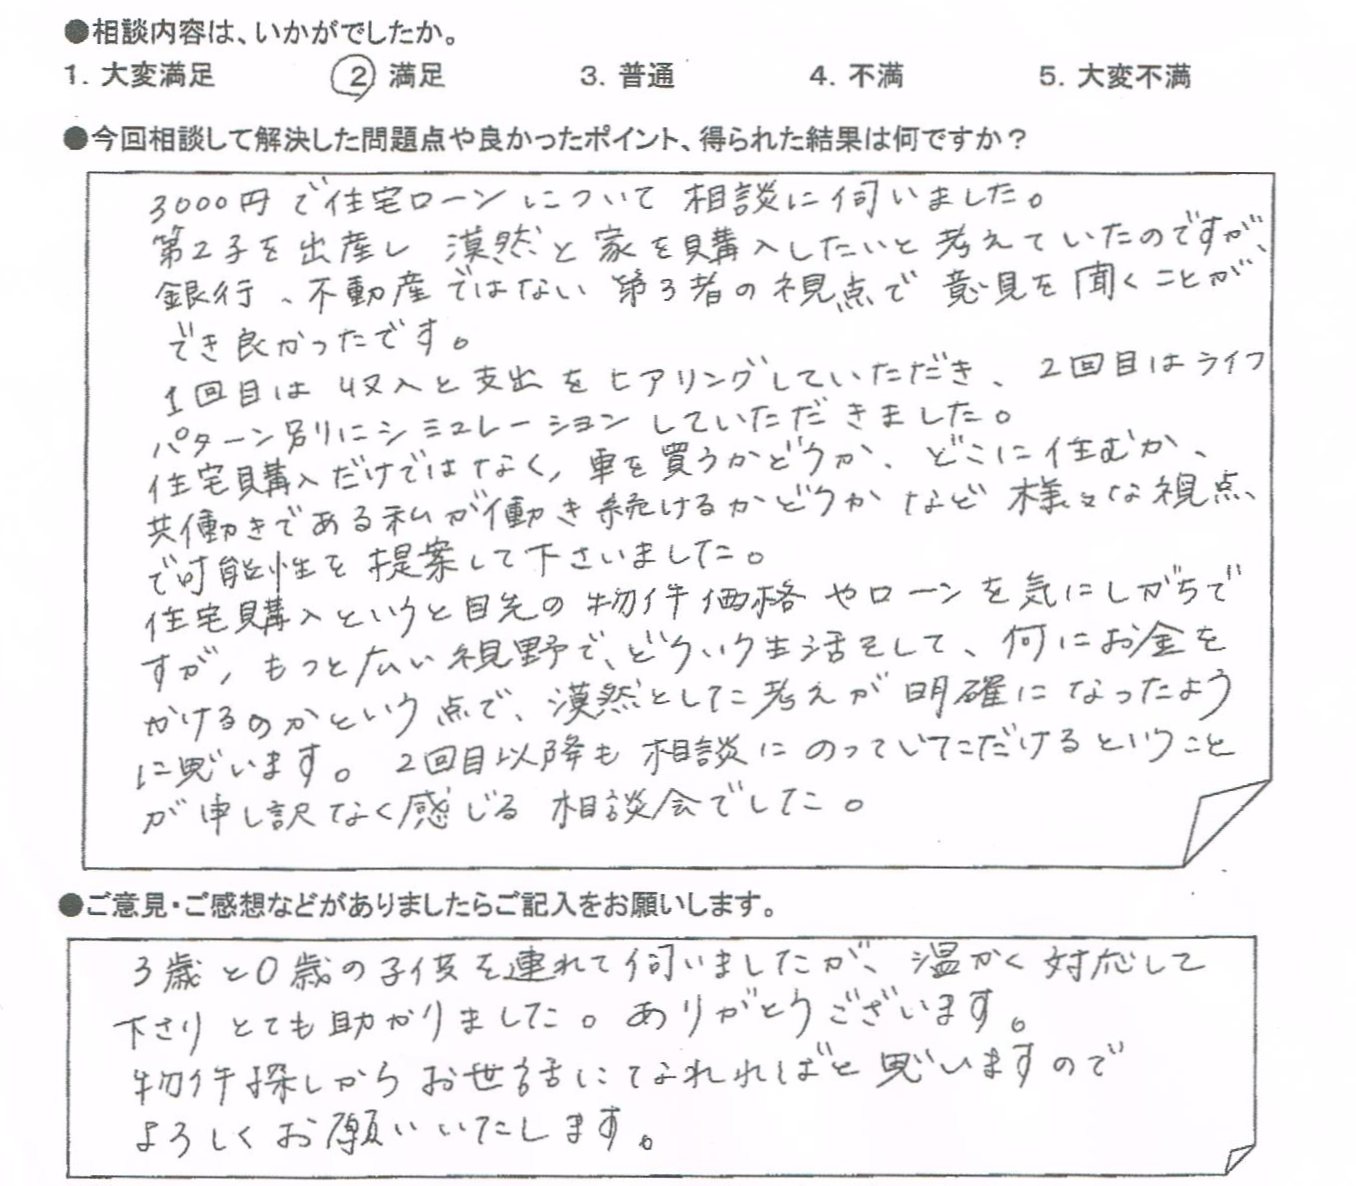 ●相談内容は、いかがでしたか。
1. 大変満足 2 満足 3. 普通 4. 不満 5. 大変不満
●今回相談して解決した問題点や良かったポイント、得られた結果は何ですか？
3000円で住宅ローンについて 相談に伺いました。
第2子を出産し 漠然と家を購入したいと考えていたのですが、
銀行、不動産ではない第3者の視点で 意見を聞くことが
でき良かったです。
1回目は収入と支出をヒアリングしていただき、2回目はライフ
パターン別にシミュレーションしていただきました。
住宅購入だけではなく、車を買うかどうか、どこに住むか、
共働きである私が働き続けるかどうかなど 様々な視点
で可能性を提案して下さいました。
住宅購入というと目先の物件価格やローンを気にしがちで
すが、もっと広い視野で、どういう生活をして、何にお金を
かけるのかという点で、漠然とした考えが明確になったよう
に思います。2回目以降も相談にのっていただけるということ
が申し訳なく感じる相談会でした。
●ご意見・ご感想などがありましたらご記入をお願いします。
3歳と0歳の子供を連れて伺いましたが、温かく対応して
下さりとても助かりました。ありがとうございます。
物件探しからお世話になれればと思いますので
よろしくお願いいたします。